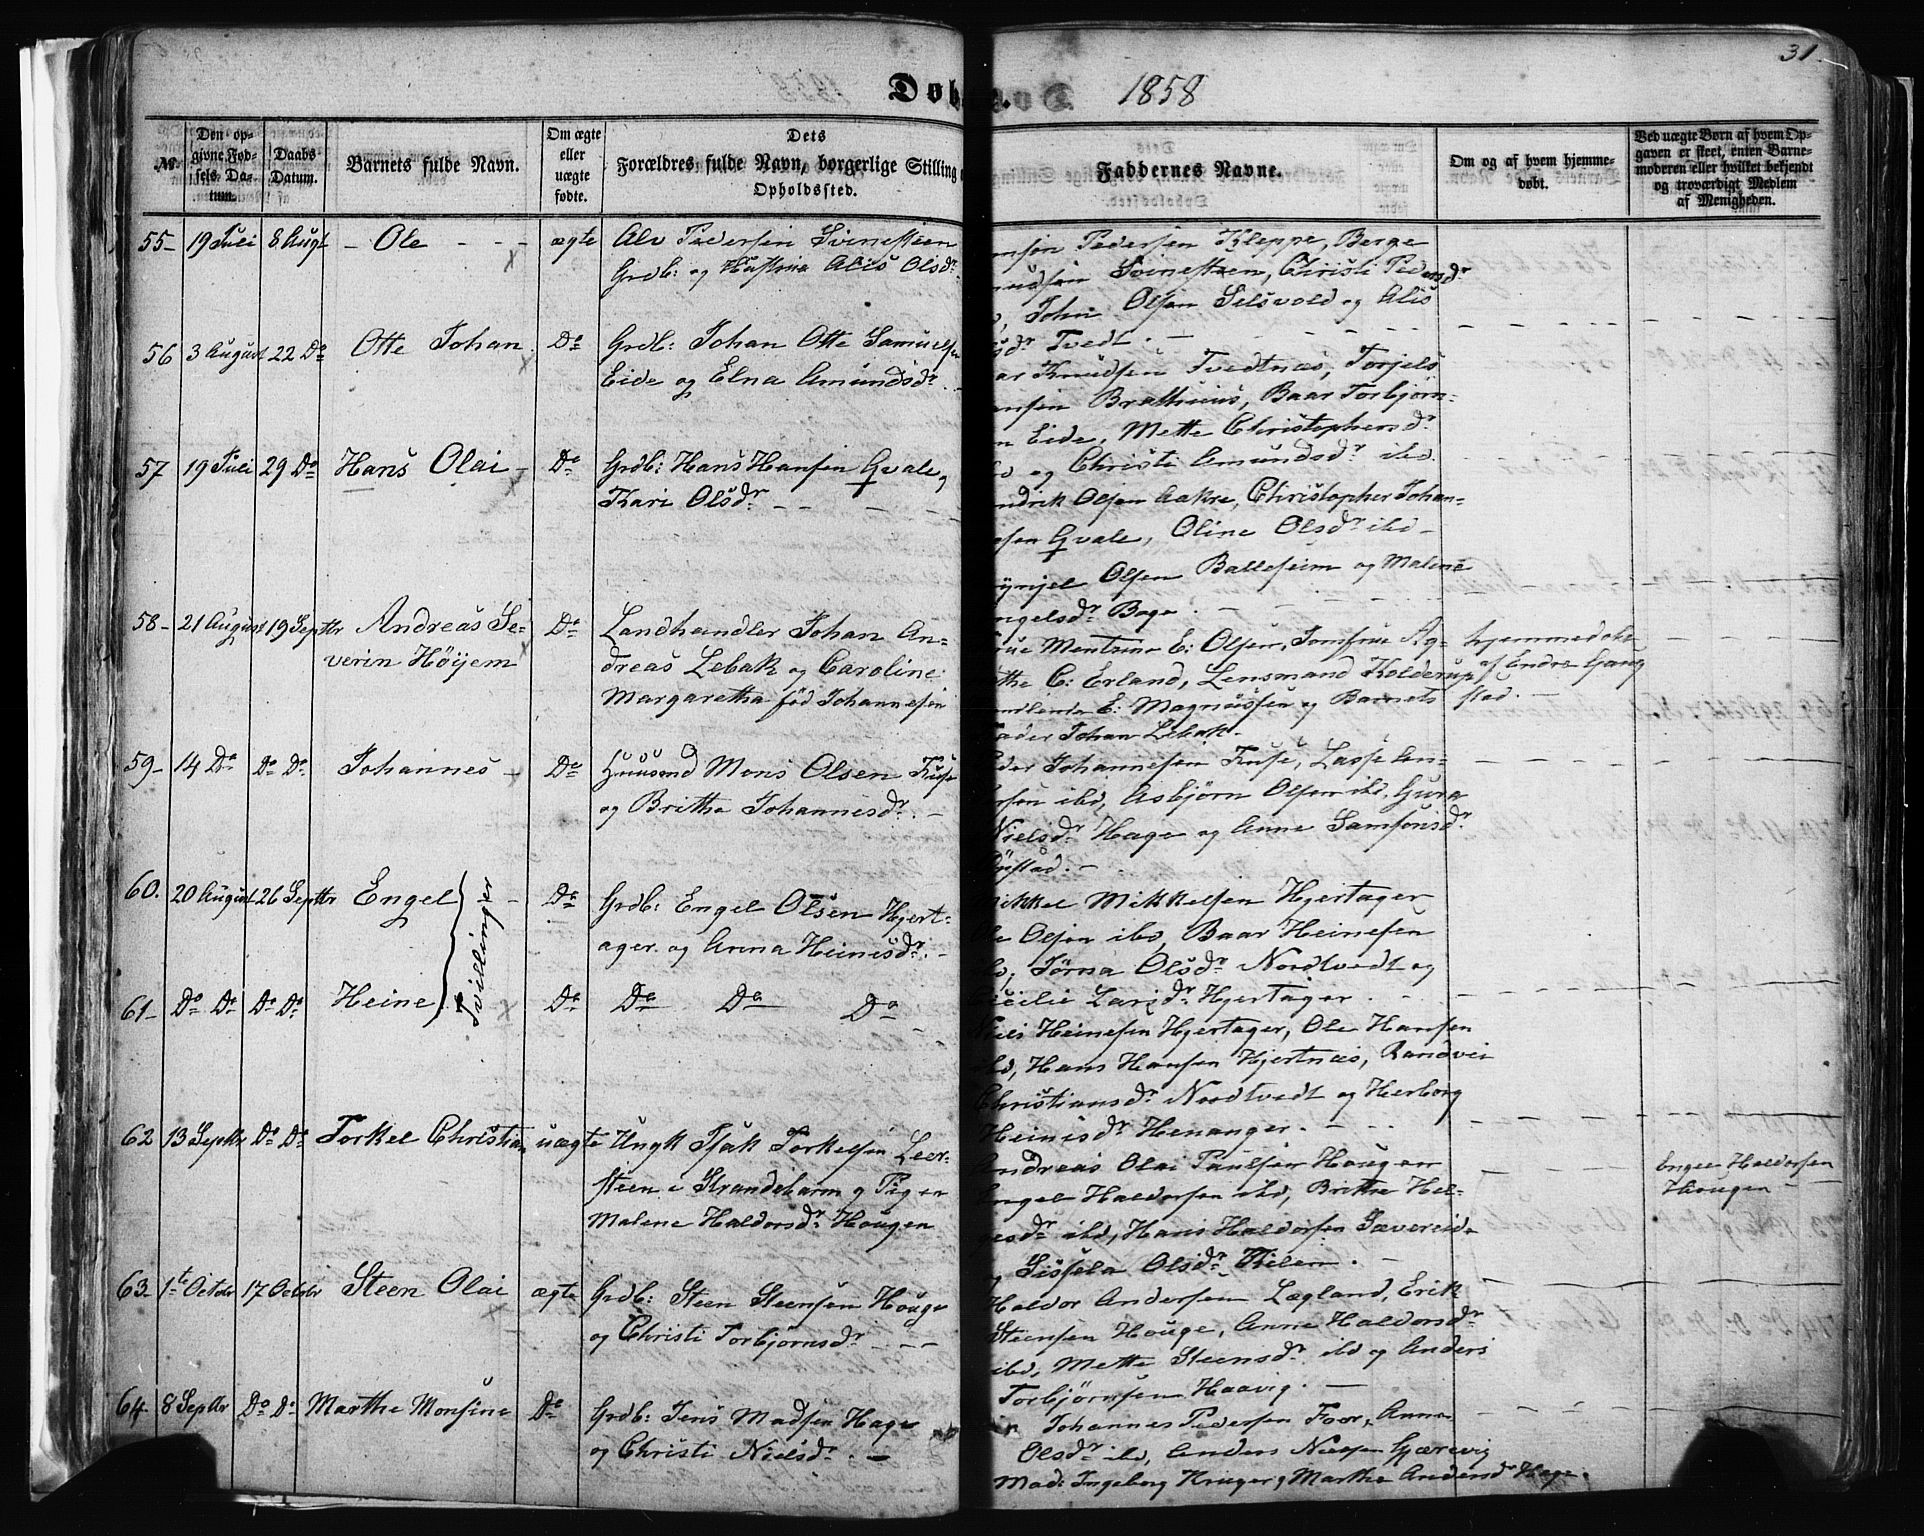 31.
Døb 1858
№
Den opgivne Fødsels Datum.
Daabs Datum.
Barnets fulde Navn.
Om ægte eller uægte fødte.
Dets Forældres fulde Navn, borgerlige Stilling Opholdssted.
Faddernes Navne.
Om og af hvem hjemmedøbt.
Ved uægte Børn af hvem Opgaven er skeet, enten Barnemoderen eller hvilket bekjendt og troværdigt Medlem af Menigheden.
55 - 19 Juli 8 Augt - Ole - - - ægte Alv Pedersen Svinesteen
Grdb: og Hustrue Alis Olsdr.
Pedersen Kleppe, Berge
Svinesteen, Christi Pedersdr
John Olsen Selsvold og Alis
Tvedt. -
56 3 August 22 Do Otte Johan Do Grdb: Johan Otte Samuelsen
Eide og Elna Amundsdr.
Knudsen Tvedtnæs, Torjels
Brathuus, Baar Torbjørn-
Eide, Mette Christophersdr
og Christi Amundsdr ibd.
57 19 Juli 29 Do Hans Olai - Do Grdb: Hans Hansen Qvale,
Kari Olsdr - - - -
Olsen Aakre, Christopher Johan-
Qvale, Oline Olsdr ibd -
Olsen Balleseim og Malene
Bage - - -
58 - 21 August 19 Septbr Andreas Se-
verin Höijem Do Landhandler Johan An-
dreas Lebak og Caroline
Margaretha föd Johannesen
E: Olsen, Jomfrue Ag-
the C: Erland, Lensmand Kolderup
E: Magnussen og Barnets
Fader Johan Lebak.
hjemmedøbt
af Endre Gaug
stad. -
59 - 14 Do Do Do Johannes - Do Huusmd Mons Olsen Fuse
og Brithe Johannisdr. -
Johannesen Fuse, Lasse An-
ibd, Asbjörn Olsen ibd, Gura
Nielsdr Hage og Anne Samsonsdr
60. 20 August 26 Septbr Engel - Do Grdb: Engel Olsen Hjert-
ager og Anna Heinesdr. -
Mikkel Mikkelsen Hjertager
Ole Olsen ibd, Baar Heinesen
ibd, Jörna Olsdr Nordtvedt og
Cicilie Larsdr Hjertager. - -
Tvillinger
61 - Do Do Do Do Heine Do Do Do Do
Niels Heinesen Hjertager, Ole Hansen
ibd, Hans Hansen Hjertnæs, Randvei
Christiansdr Nordtvedt og Herborg
Heinisdr Henanger. - - -
62 13 Septbr Do Do Torkel Christian uægte Ungk Isak Torkelsen Leer-
steen i Strandebarm og Pigen
Malene Haldorsdr Hougen
Andreas Olai Paulsen Hougen
Engel Haldorsen ibd, Brithe Hel-
ibd, Hans Haldorsen Sævereide
og Sissela Olsdr Kilen. -
Engel Haldorsen
Hougen - -
63 1te Octobr 17 Octobr Steen Olai ægte Grdb: Steen Steensen Houge
og Christi Torbjörnsdr - - -
Haldor Andersen Lægland, Erik
Steensen Houge, Anne Haldorsdr
ibd, Mette Steensdr ibd og Anders
Torbjörnsen Haavig. -
64. 8 Septbr Do Do Marthe Monsine Do Grdb: Jens Madsen Hage
og Christi Nielsdr. -
Johannes Pedersen Foor, Anna
Olsdr ibd, Anders Gjærevig
Mad: Ingeborg Kruger, Marthe Andersdr Hage.